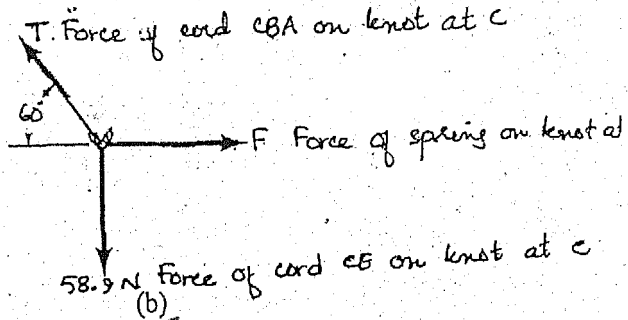 T. Force of cord CBA on knot at C
60°
F Force of spring on knot at
58.9 N Force of cord CE on knot at C
(b)